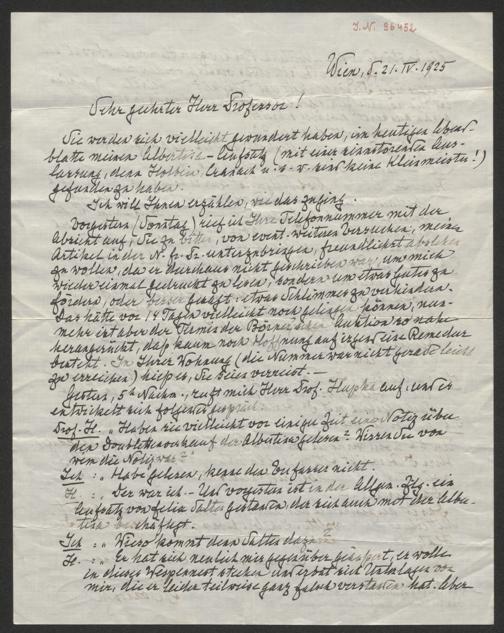 I.N. 96452
Wien, d. 21. IV. 1925
Sehr geehrter Herr Professor!
Sie werden sich vielleicht gewundert haben, im heutigen Abend-
blatte meinen Albertina-Aufsatz (mit einer sinnstörenden Aus-
lassung, denn Holbein, Cranach u.s.w. sind keine Kleinmeister!)
gefunden zu haben.
Ich will Ihnen erzählen, wie das zuging.
Vorgestern (Sonntag) rief ich Ihre Telefonnummer mit der
Absicht auf, Sie zu bitten, von event. weiteren Versuchen, meinen
Artikel in der N. fr. Pr. unterzubringen, freundlichst absehen
zu wollen, da er durchaus nicht geschrieben war, um mich
wieder einmal gedruckt zu lesen, sondern um etwas Gutes zu
fördern, oder besser gesagt: etwas Schlimmes zu verhindern.
Das hätte vor 14 Tagen vielleicht noch gelingen können, nun-
mehr ist aber der Termin der Börner'schen Auktion so nahe
herangerückt, daß kaum noch Hoffnung auf irgend eine Remedur
besteht. In Ihrer Wohnung (die Nummer war nicht gerade leicht
zu erreichen) hieß es, Sie seien verreist. –
Gestern, 5h Nachm., ruft mich Herr Prof. Hupka auf und es
entwickelt sich folgendes Gespräch:
Prof. H. „Haben Sie vielleicht vor einiger Zeit eine Notiz über
den Doublettenverkauf der Albertina gelesen? Wissen Sie von
wem die Notiz war?"
Ich: „Habe gelesen, kenne den Verfasser nicht.
H.: „Der war ich. – Und vorgestern ist in der Allgem. Ztg. ein
Aufsatz von Felix Salten gestanden, der sich auch mit der Alber-
tina beschäftigt.
Ich: „Wieso kommt denn Salten dazu?
H.: „Er hat sich neulich mir gegenüber geäußert, er wolle
in dieses Wespennest stechen und erbat sich Unterlagen von
mir, die er leider teilweise ganz falsch verstanden hat. Aber